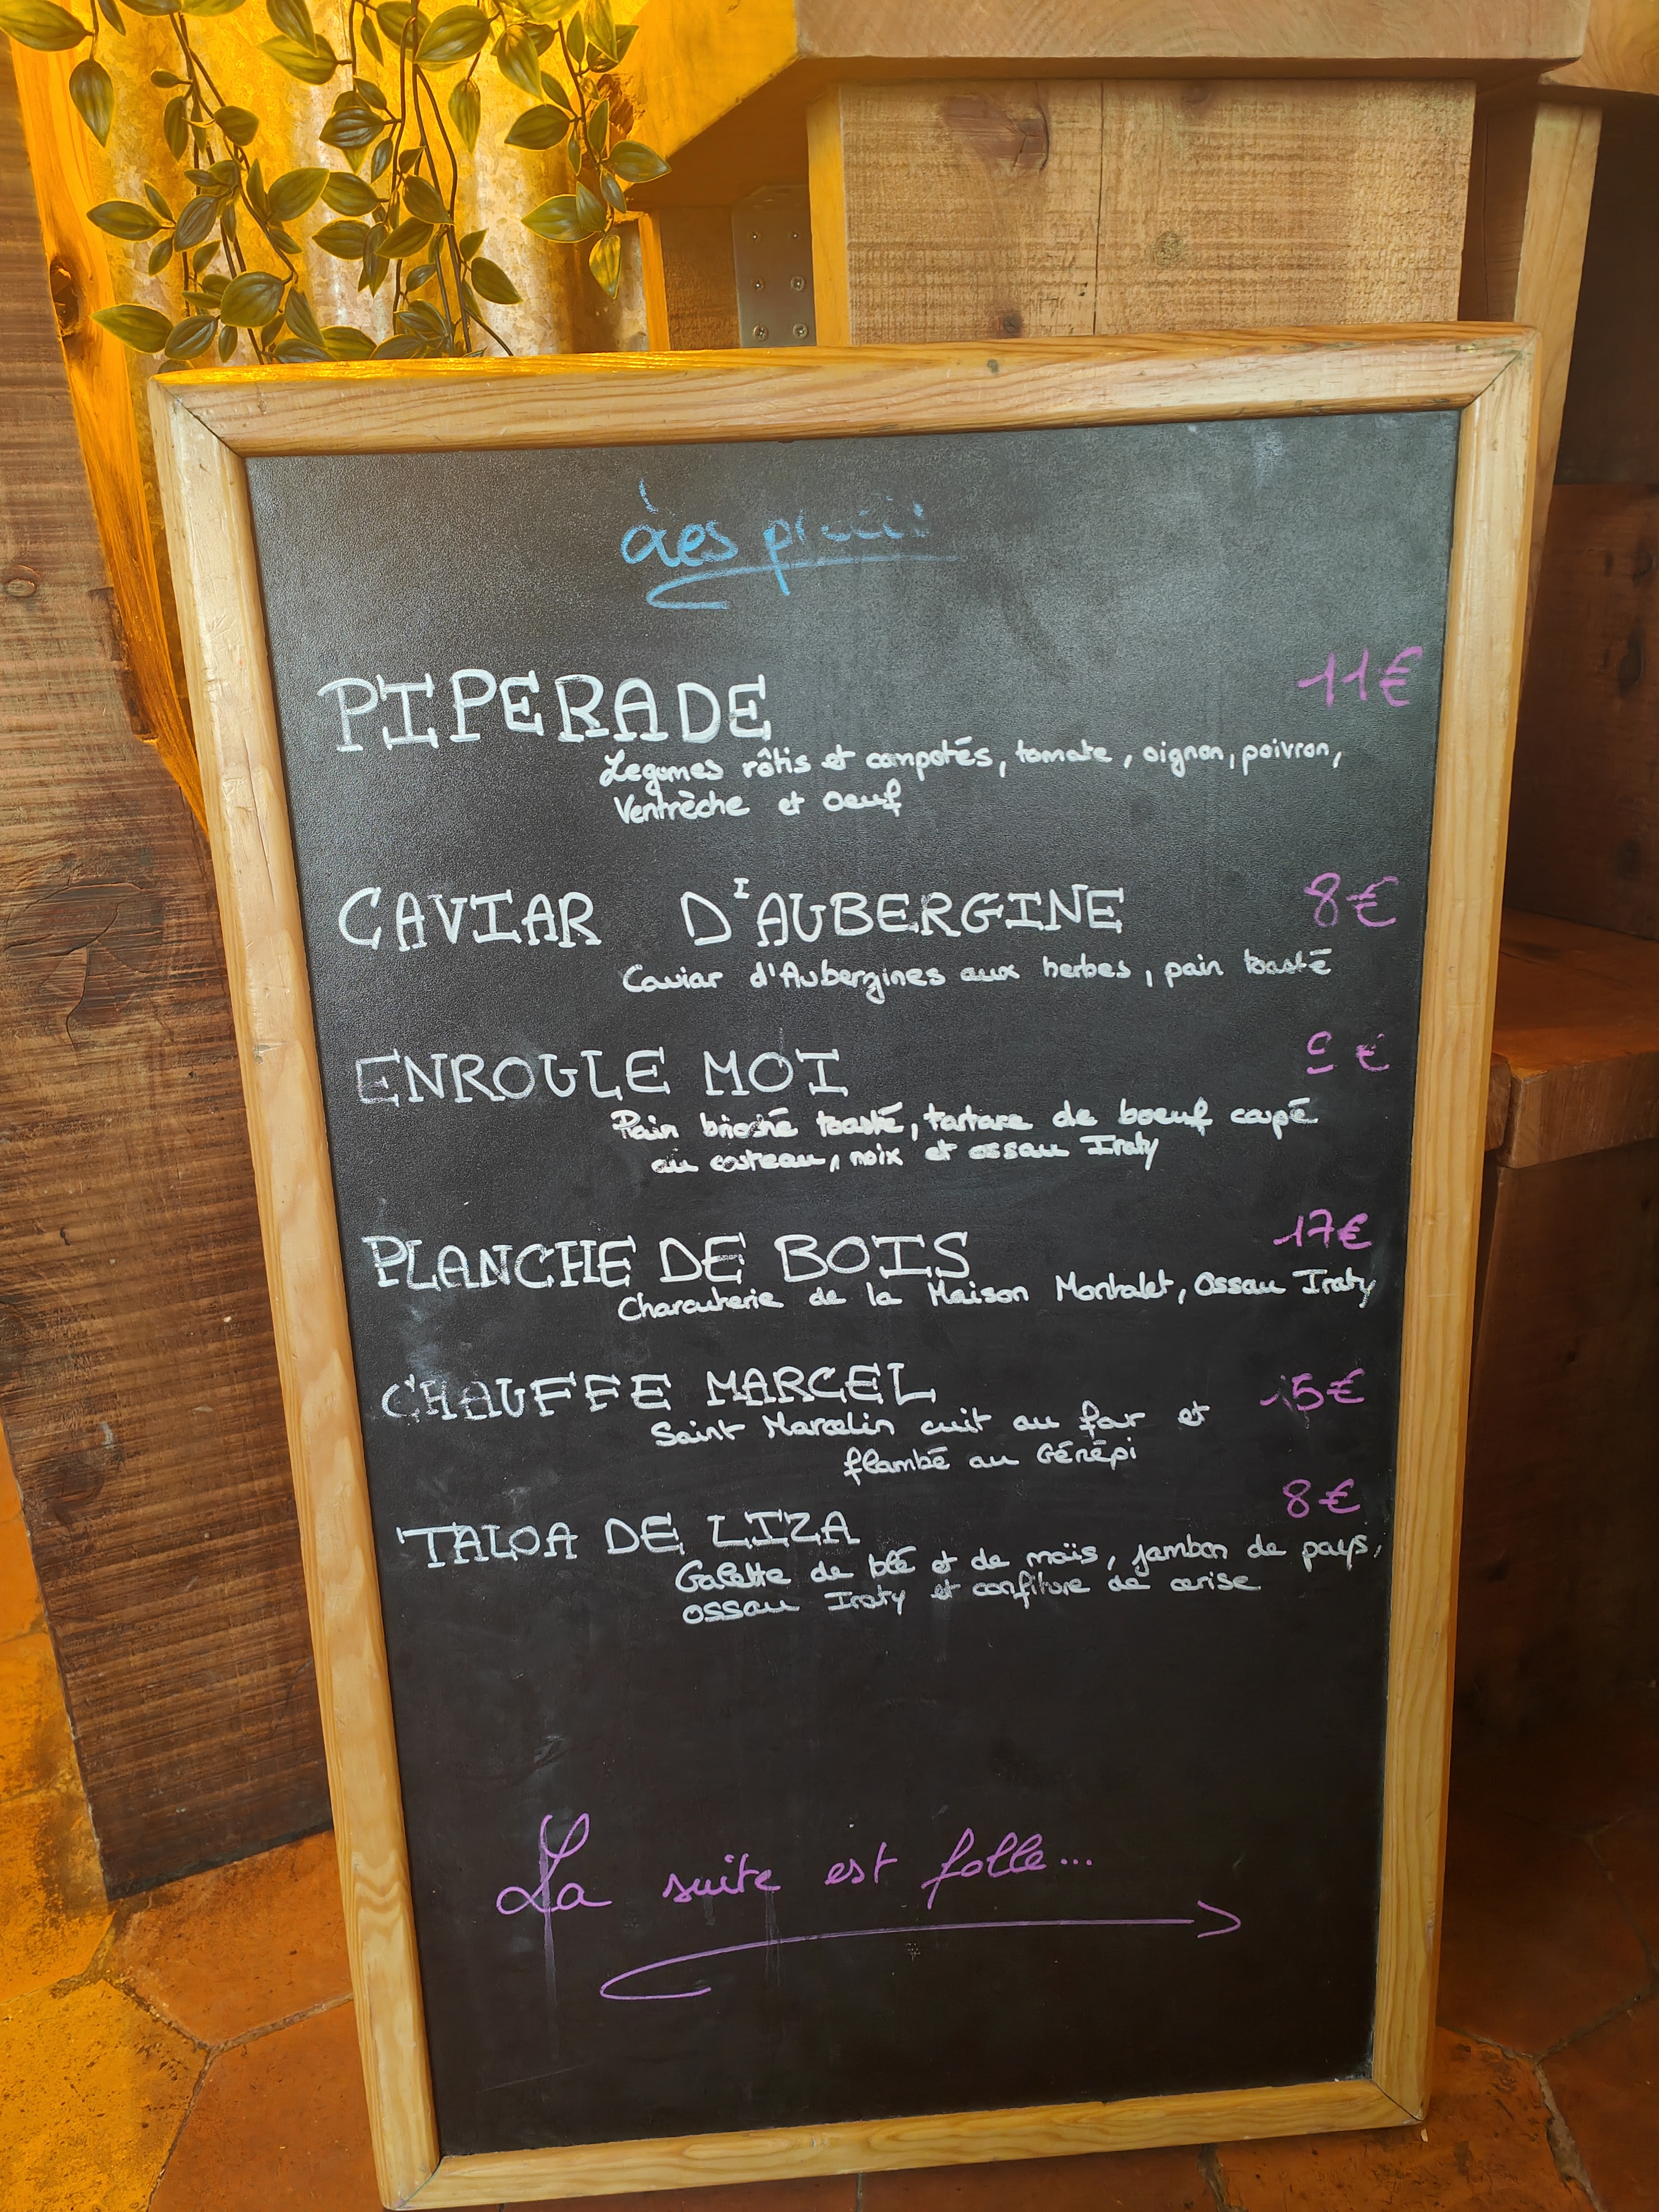 Les
PIPERADE 11€
Legumes rôtis et compotés, tomate, oignon, poivron,
Ventrèche et oeuf
CAVIAR D'AUBERGINE 8€
Caviar d'Aubergines aux herbes, pain toasté
ENROULE MOI €
Pain brioché toasté, tartare de boeuf coupé
au couteau, noix et ossau Iraty
PLANCHE DE BOIS 17€
Charcuterie de la Maison Montalet, Ossau Iraty
CHAUFFE MARCEL 15€
Saint Marcelin cuit au four et
flambé au Génépi
TALOA DE LIZA 8€
Galette de blé et de maïs, jambon de pays,
ossau Iraty et confiture de cerise
La suite est folle...